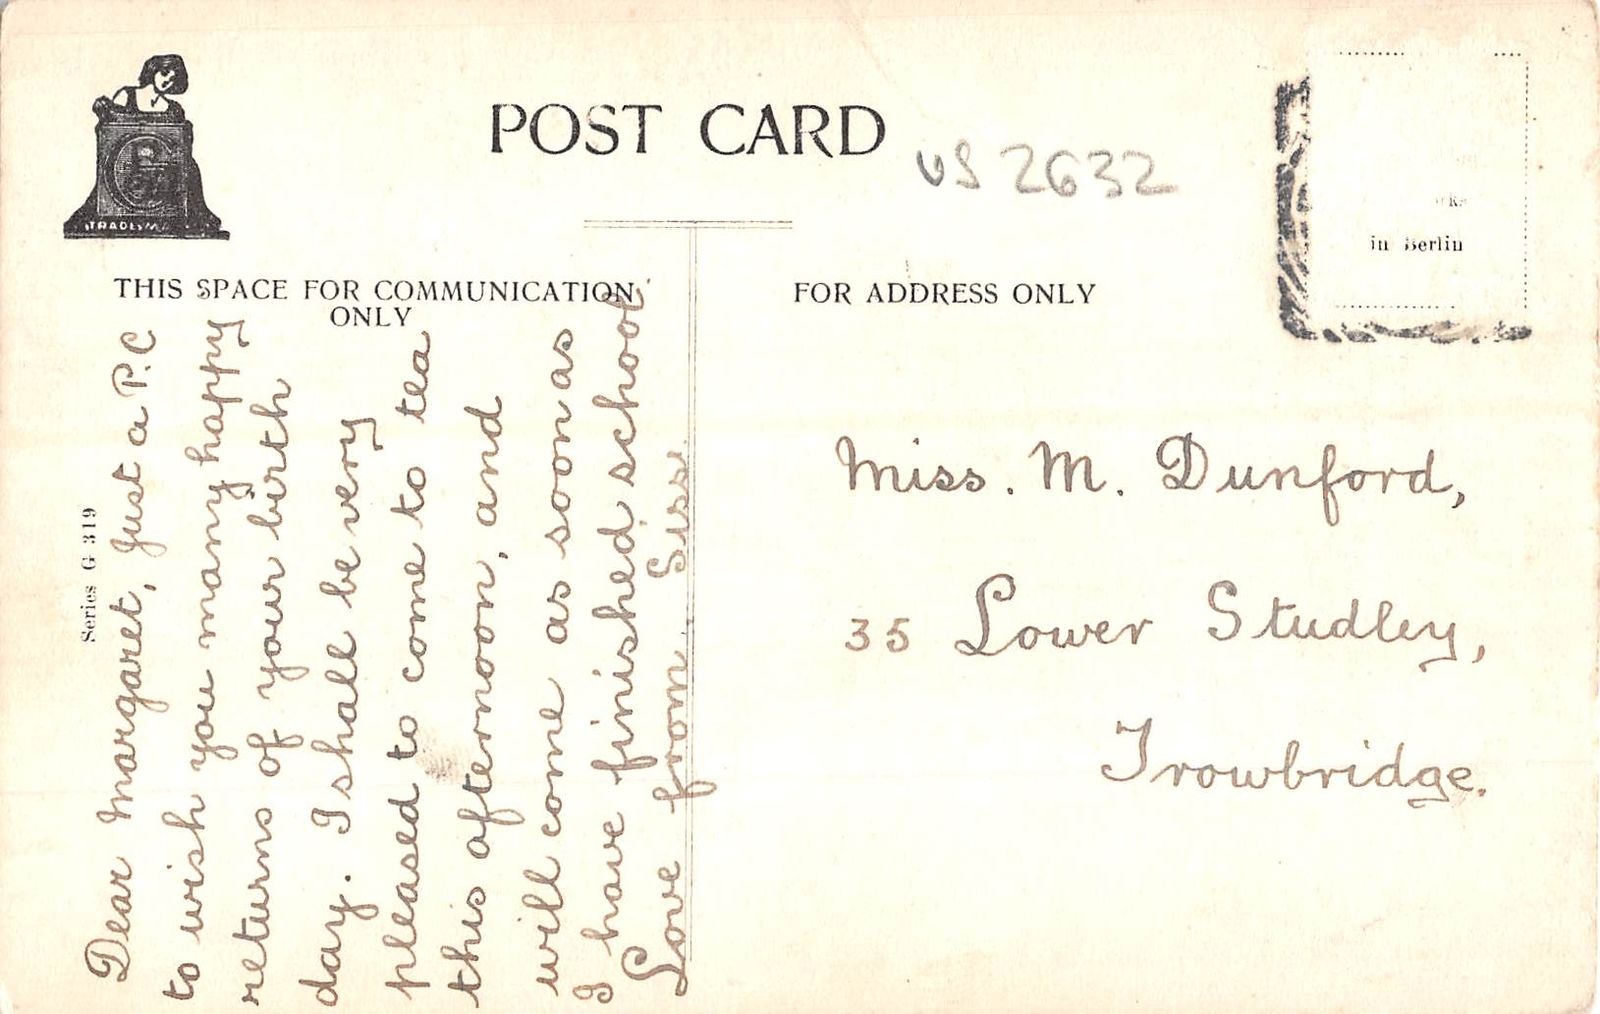 POST CARD
US 2632
in Berlin
THIS SPACE FOR COMMUNICATION
ONLY
FOR ADDRESS ONLY
Series G 319
Dear Margaret, Just a P.C
to wish you many happy
returns of your birth
day. I shall be very
pleased to come to tea
this afternoon, and
will come as soon as
I have finished school
Love from Siss.
Miss. M. Dunford,
35 Lower Studley,
Trowbridge.